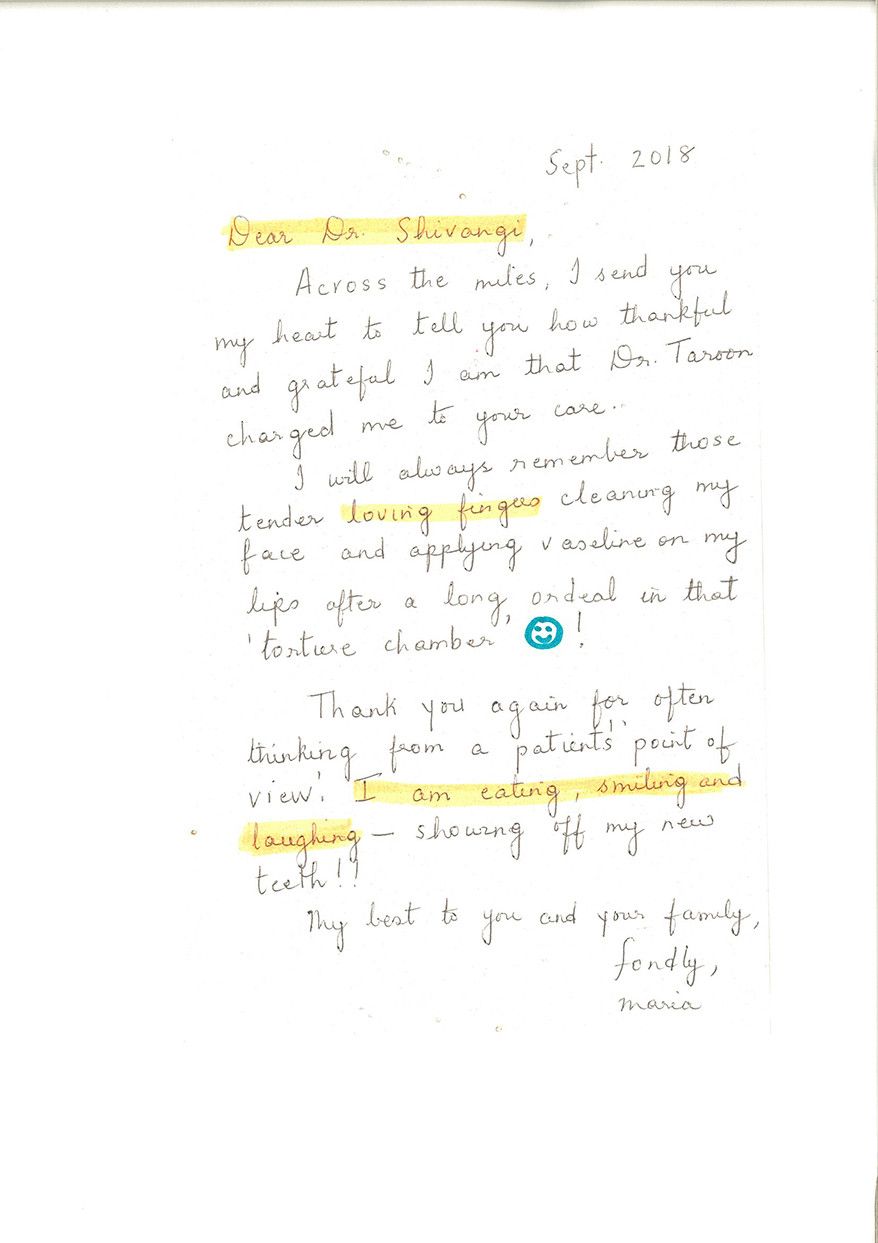 Sept. 2018
Dear Dr. Shivangi,
Across the miles, I send you
my heart to tell you how thankful
and grateful I am that Dr. Taroon
charged me to your care..
I will always remember those
tender loving fingers cleaning my
face and applying vaseline on my
lips after a long ordeal in that
'torture chamber' ☺!
Thank you again for often
thinking from a patient's point of
view! I am eating, smiling and
laughing — showing off my new
teeth!!
My best to you and your family,
fondly,
maria